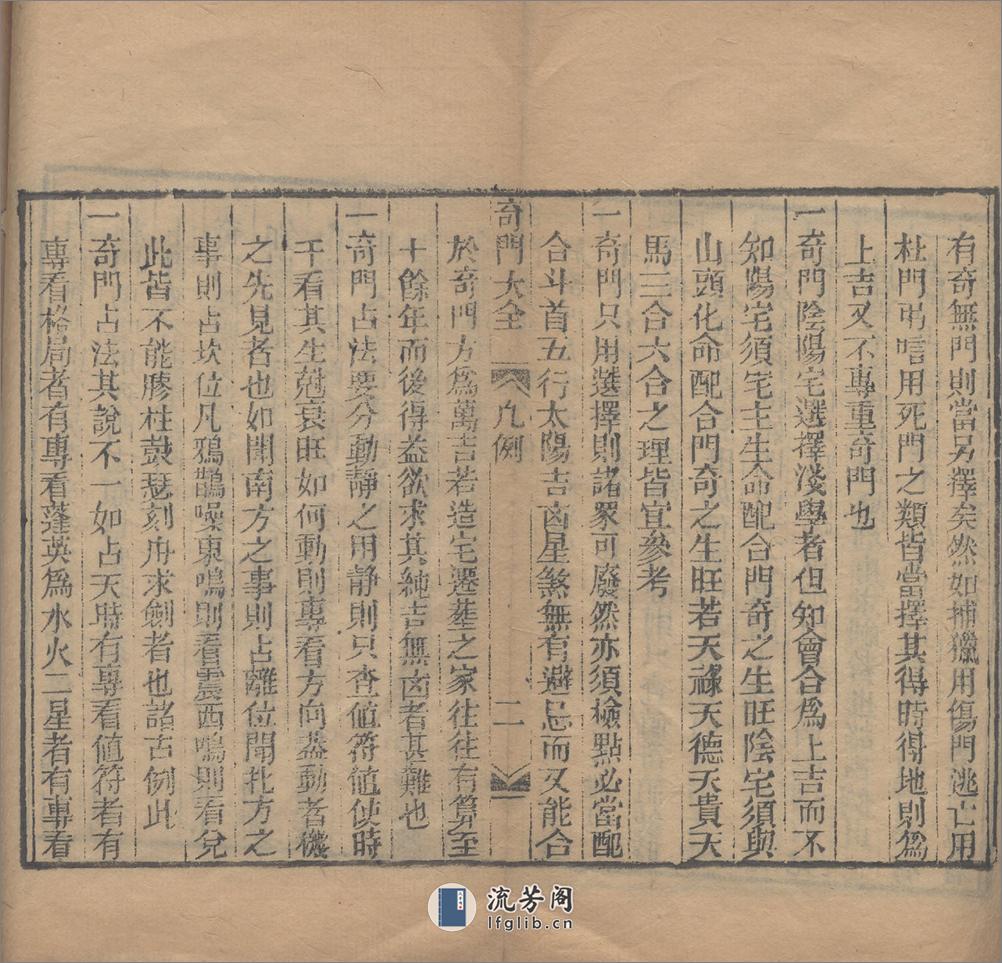 有奇無門則當另擇矣然如捕獵用傷門逃亡用
杜門弔唁用死門之類皆當擇其得時得地則爲
上吉又不專重奇門也
一奇門陰陽宅選擇淺學者但知會合爲上吉而不
知陽宅須宅主生命配合門奇之生旺陰宅須與
山頭化命配合門奇之生旺若天祿天德天貴天
馬三合六合之理皆宜參考
一奇門只用選擇則諸家可廢然亦須檢點必當配
合斗首五行太陽吉凶星煞無有避忌而又能合
奇門大全 凡例 二
於奇門方爲萬吉若造宅遷墓之家往往有算至
十餘年而後得益欲求其純吉無凶者甚難也
一奇門占法要分動靜之用靜則只查値符値使時
干看其生尅衰旺如何動則專看方向盖動者機
之先見者也如聞南方之事則占離位聞北方之
事則占坎位凡鴉鵲噪東鳴則看震西鳴則看兌
此皆不能膠柱鼓瑟刻舟求劍者也諸古例此
一奇門占法其說不一如占天時有專看値符者有
專看格局者有專看蓬英爲水火二星者有專看
流芳阁
lfglib.cn